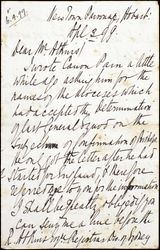 New Town Parsonage, Hobart.
Apl 3. 99
Dear Mr Atkins
I wrote Canon Pain a little
while ago asking him for the
names of the dioceses which
had accepted the determination
of last general synod on the
subject of confirmation of
He only got the letter after he had
started for England, & therefore
referred me to you for the information
I shall be greatly obliged if you
can send me a line before the
R Atkins Esq Registrar Diocese of Sydney